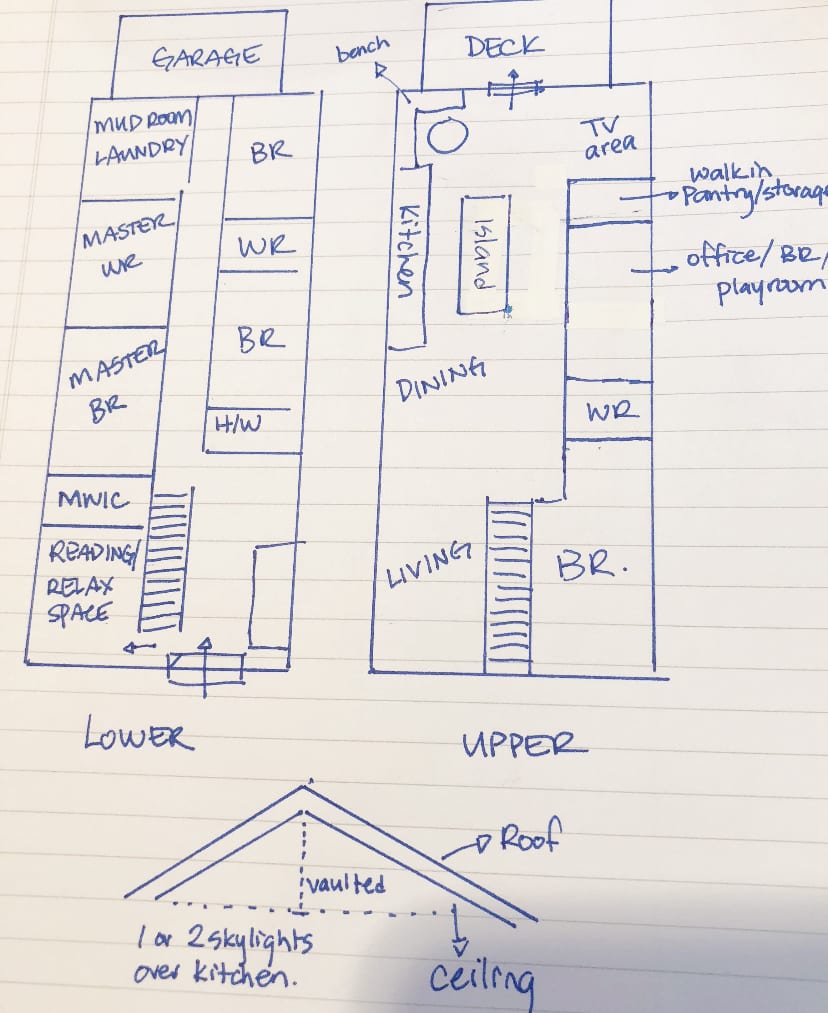 GARAGE
MUDROOM
LAUNDRY
BR
MASTER
WR
WR
MASTER
BR
BR
H/W
MWIC
READING/
RELAX
SPACE
LOWER
bench
DECK
TV
area
walkin
Pantry/storage
Kitchen
Island
office/BR/
playroom
DINING
WR
LIVING
BR.
UPPER
Roof
vaulted
1 or 2 skylights
over kitchen.
ceiling